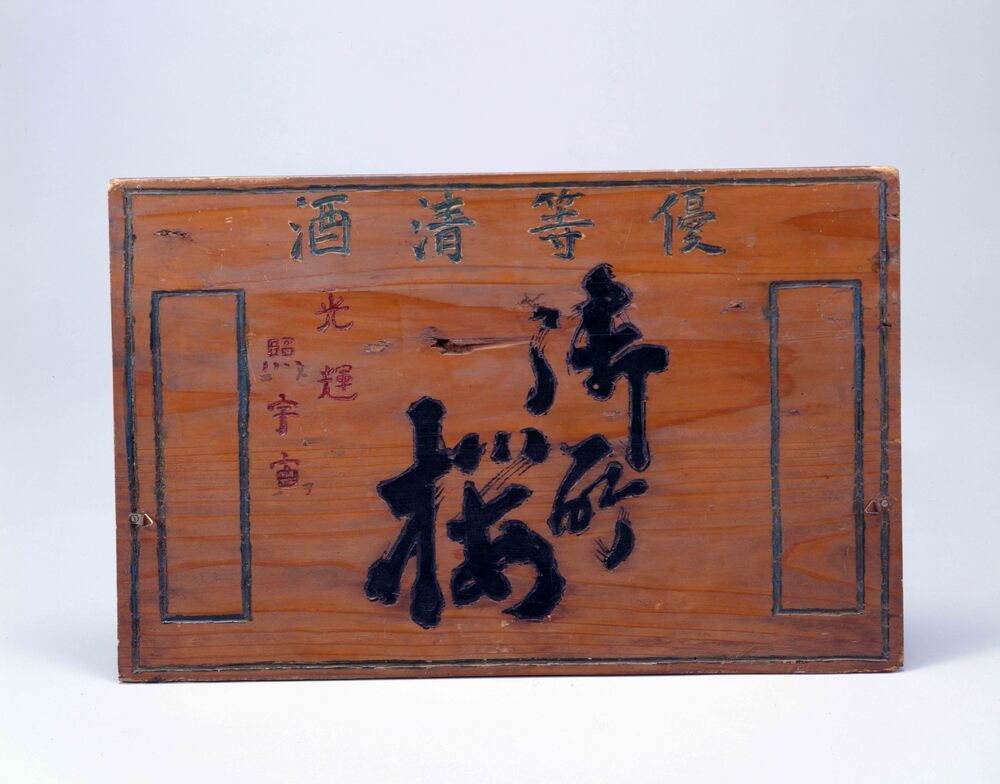 優等清酒
御所桜
光輝
照宇宙